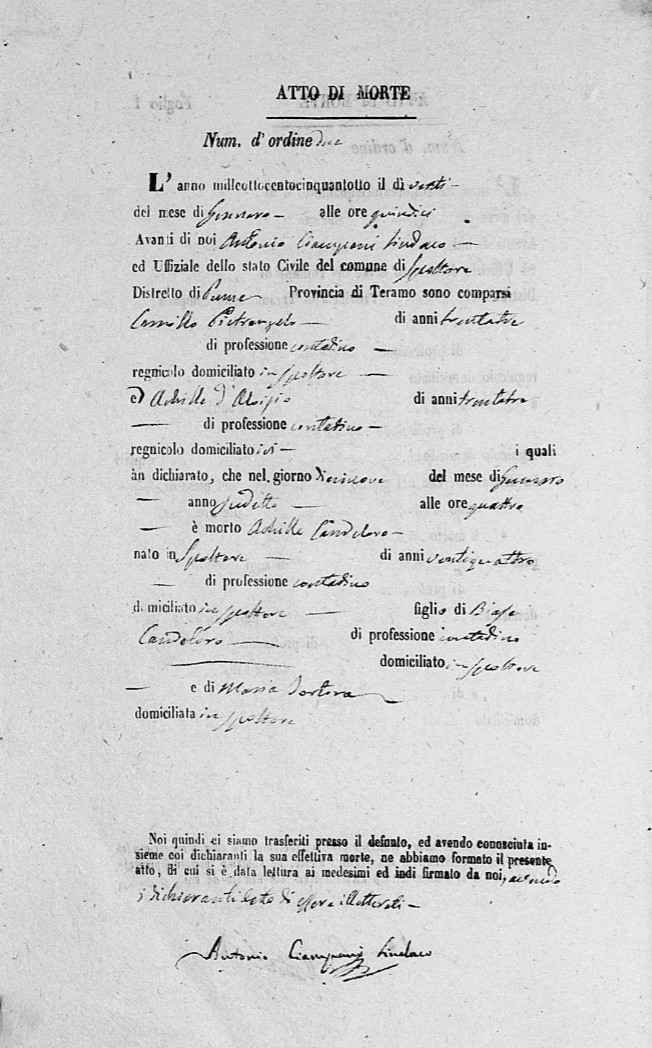 ATTO DI MORTE
Num. d'ordine due
L'anno milleottocentocinquantotto il dì venti -
del mese di Gennaro - alle ore quindici
Avanti di noi Antonio Ciamponi Sindaco -
ed Uffiziale dello stato Civile del comune di Spoltore
Distretto di Penne Provincia di Teramo sono comparsi
Camillo Pietrangelo - di anni trentatre
di professione contadino -
regnicolo domiciliato in Spoltore -
ed Achille d'Aloisio di anni trentatre
- di professione contadino -
regnicolo domiciliato ivi - i quali
àn dichiarato, che nel giorno diecinove del mese di Gennaro
- anno sudetto - alle ore quattro
- è morto Achille Candeloro -
nato in Spoltore - di anni ventiquattro
- di professione contadino
domiciliato in Spoltore - figlio di Biase
Candeloro - di professione contadino
domiciliato in Spoltore
- e di Maria Sartora
domiciliata in Spoltore
Noi quindi ci siamo trasferiti presso il defunto, ed avendo conosciuta in-
sieme coi dichiaranti la sua effettiva morte, ne abbiamo formato il presente
atto, di cui si è data lettura ai medesimi ed indi firmato da noi, avendo
i dichiaranti detto di essere illetterati -
Antonio Ciamponi Sindaco